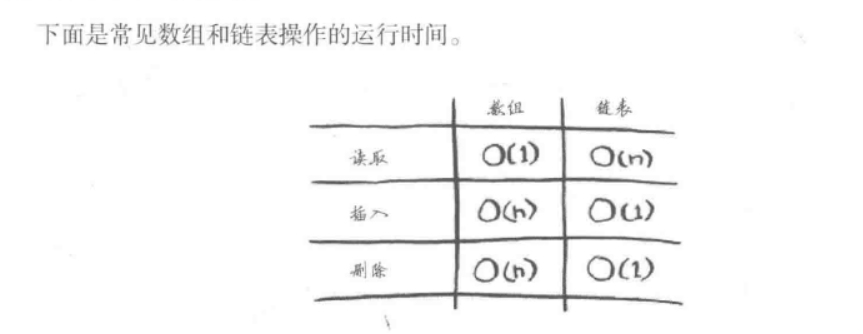 下面是常见数组和链表操作的运行时间。
数组 链表
读取 O(1) O(n)
插入 O(n) O(1)
删除 O(n) O(1)